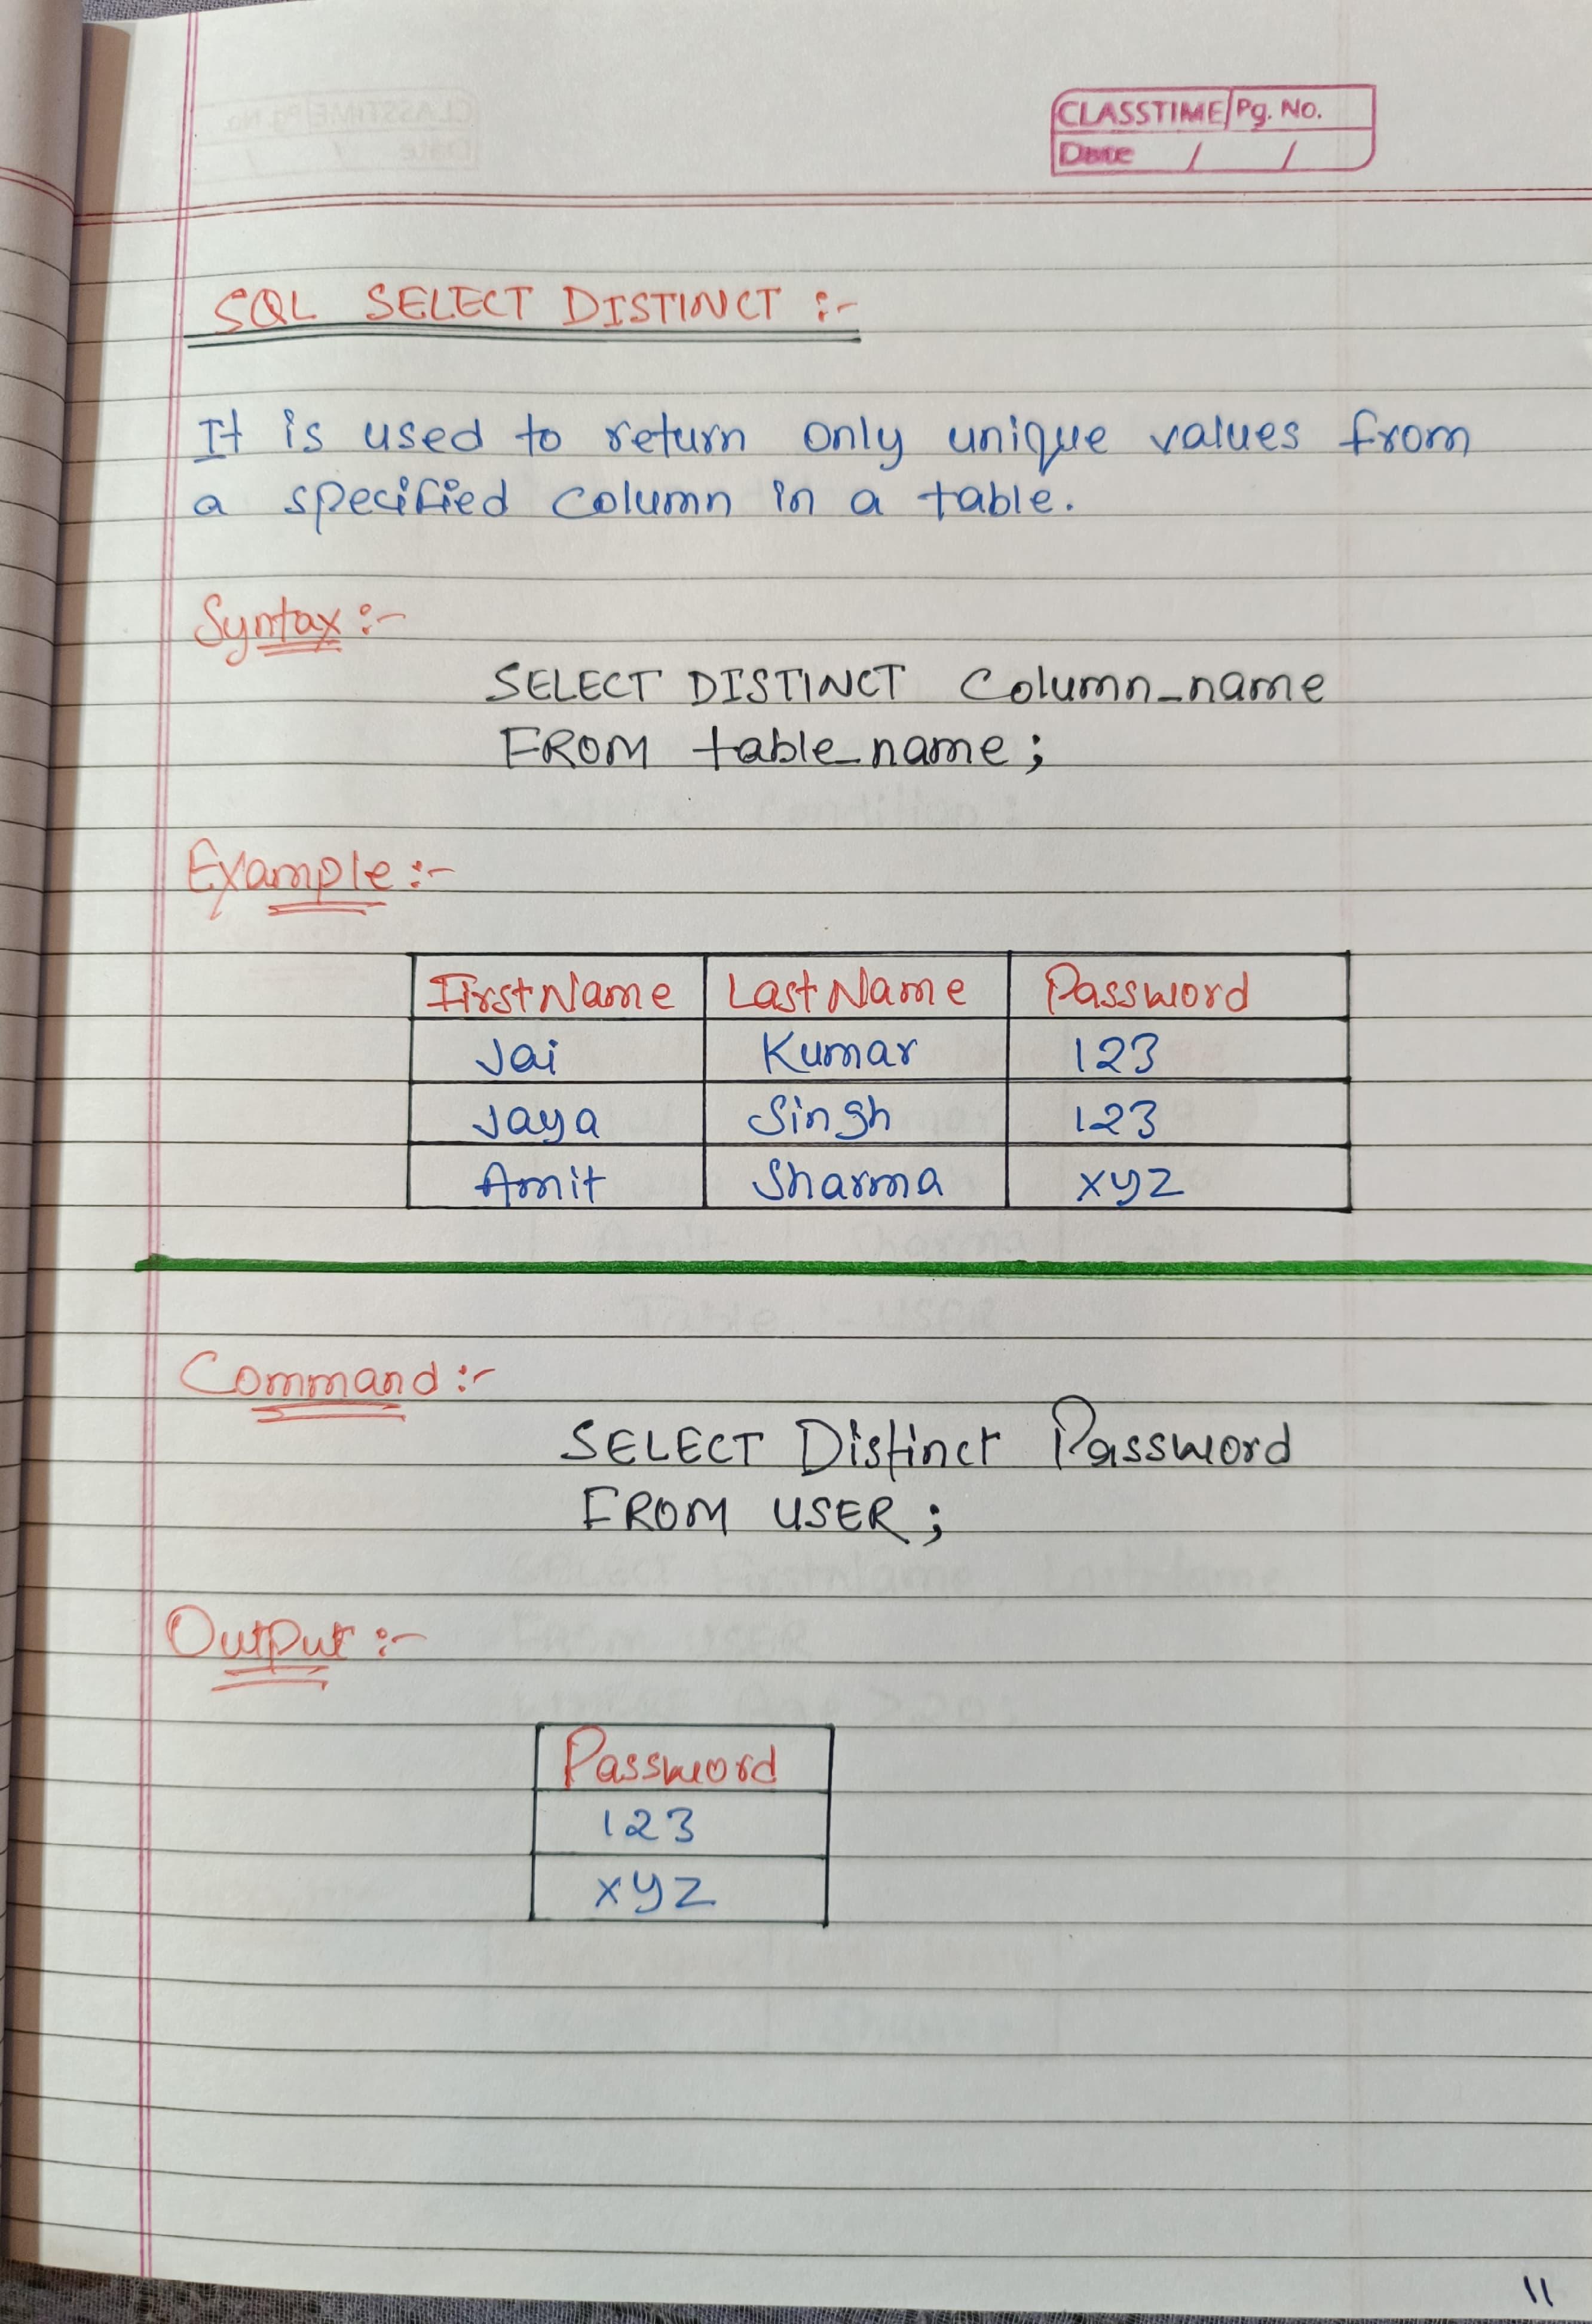 CLASSTIME Pg. No.
Date / /
SQL SELECT DISTINCT :-
It is used to return only unique values from
a specified column in a table.
Syntax :-
SELECT DISTINCT Column_name
FROM table_name ;
Example :-
FirstName LastName Password
Jai Kumar 123
Jaya Singh 123
Amit Sharma xyz
Command :-
SELECT Distinct Password
FROM USER ;
Output :-
Password
123
xyz
11